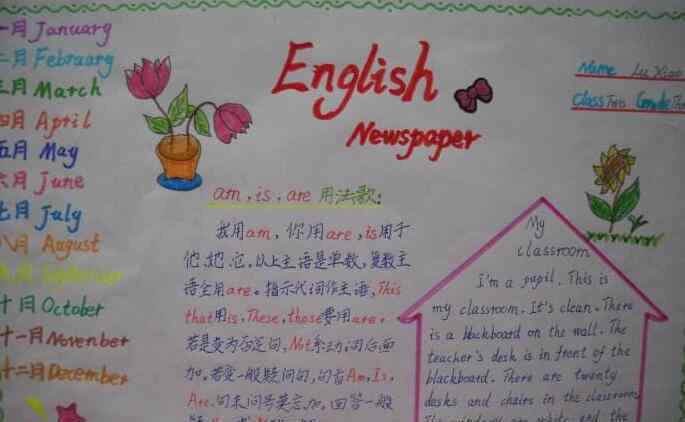 一月 January
二月 February
三月 March
四月 April
五月 May
六月 June
七月 July
八月 August
九月 September
十月 October
十一月 November
十二月 December
English
Newspaper
Name Lu Xiao
Class Two Grade Th
am, is, are 用法歌:
我用am, 你用are, is用于
他, 她, 它. 以上主语是单数, 复数主
语全用are. 指示代词作主语, This
that用is, These, those要用are.
若是变为否定句, Not系动词后面
加. 若变一般疑问句, 句首Am, Is,
Are. 句末问号莫忘加. 回答一般
My
classroom
I'm a pupil. This is
my classroom. It's clean. There
is a blackboard on the wall. The
teacher's desk is in front of the
blackboard. There are twenty
desks and chairs in the classroom
The windows are white and the